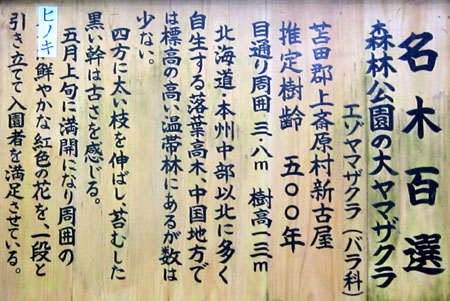 名木百選
森林公園の大ヤマザクラ
エゾヤマザクラ(バラ科)
苫田郡上斎原村新古屋
推定樹齢 五〇〇年
目通り周囲 三・八m 樹高一三m
北海道・本州中部以北に多く
自生する落葉高木、中国地方で
は標高の高い温帯林にあるが数は
少ない。
四方に太い枝を伸ばし、苔むした
黒い幹は古さを感じる。
五月上旬に満開になり周囲の
ヒノキ 鮮やかな紅色の花を、一段と
引き立てて入園者を満足させている。